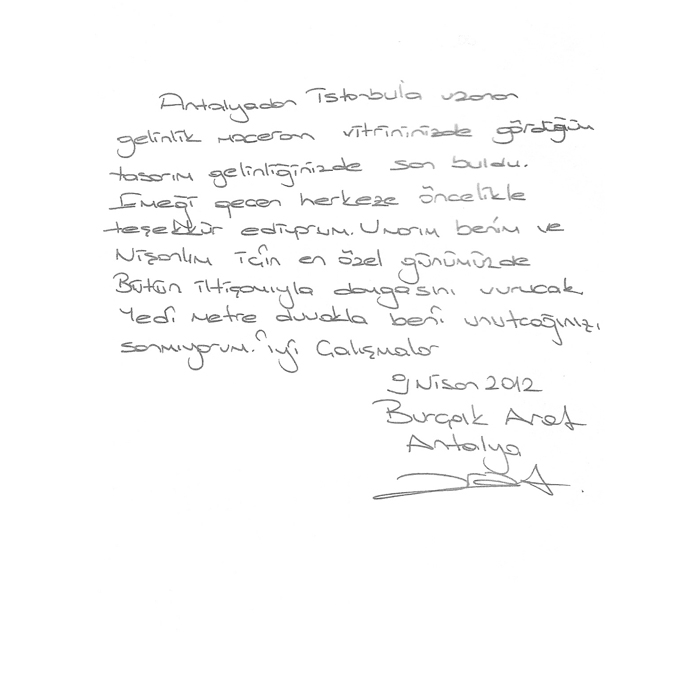 Antalyadan İstanbula uzanan
gelinlik maceram vitrininizde gördüğüm
tasarım gelinliğinizde son buldu.
Emeği geçen herkeze öncelikle
teşekkür ediyorum. Umarım benim ve
Nişanlım için en özel günümüzde
Bütün ihtişamıyla damgasını vuracak
Yedi metre duvakla beni unutcağınızı
sanmıyorum. iyi Çalışmalar
9 Nisan 2012
Burçak
Antalya